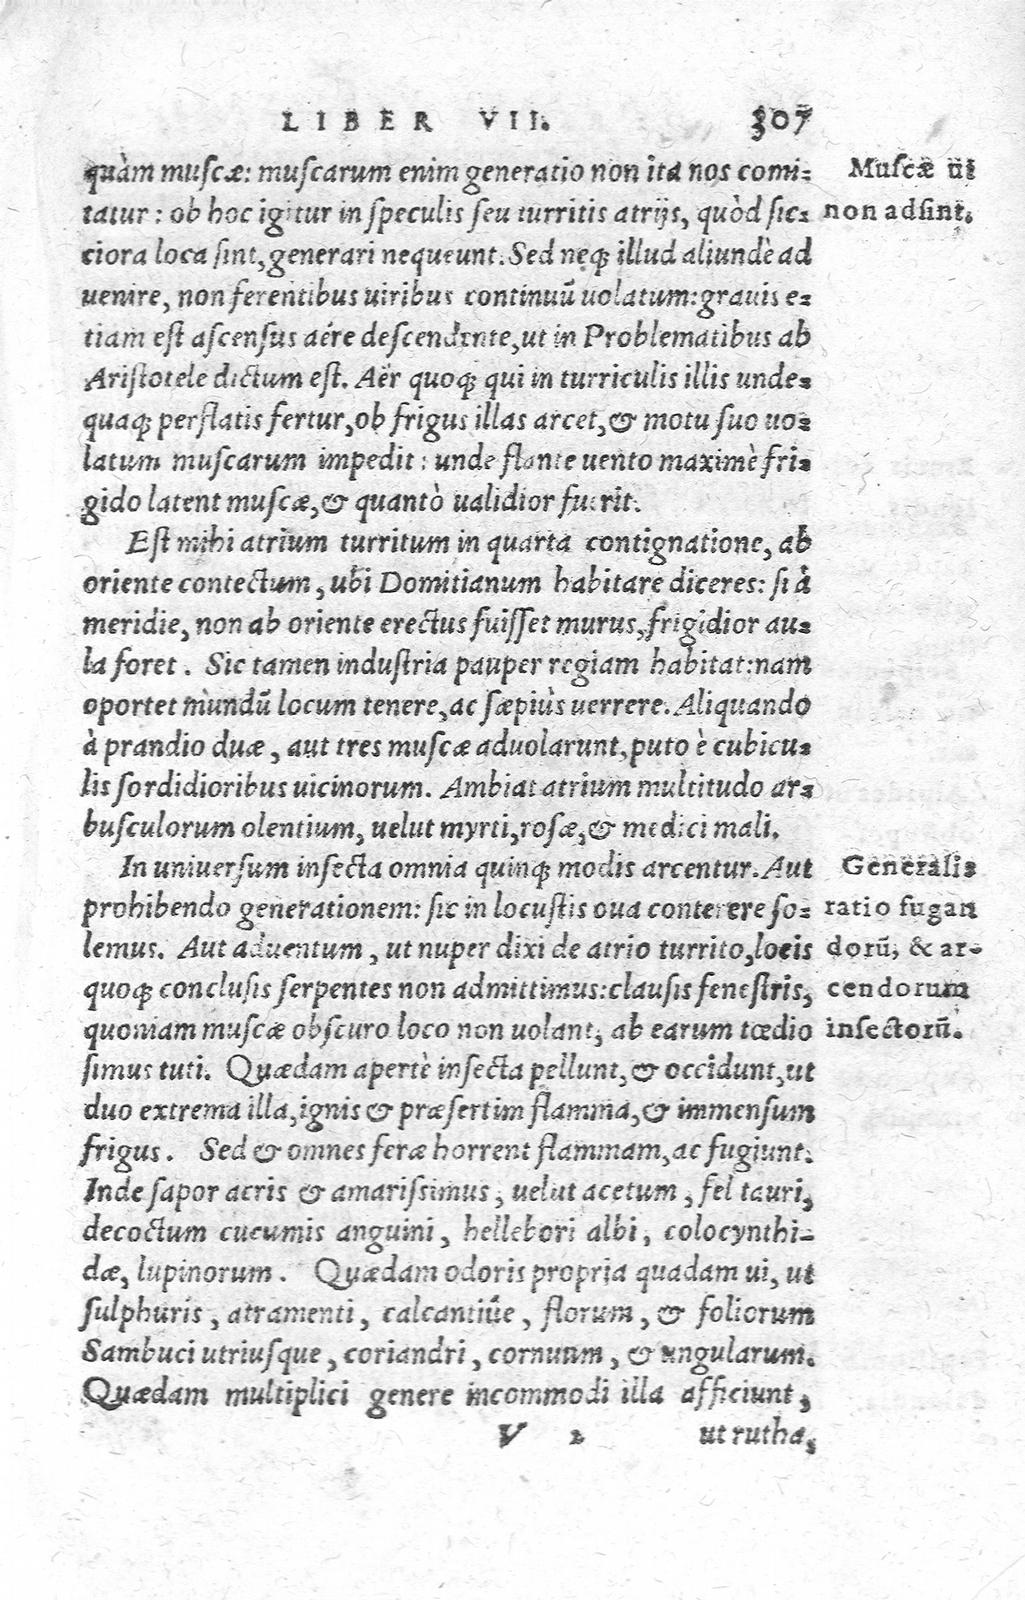 LIBER VII. 307
quàm muscæ: muscarum enim generatio non ita nos comi-
tatur: ob hoc igitur in speculis seu turritis atrijs, quòd sic-
ciora loca sint, generari nequeunt. Sed neq; illud aliundè ad
uenire, non ferentibus uiribus continuũ uolatum: grauis e-
tiam est ascensus aére descendente, ut in Problematibus ab
Aristotele dictum est. Aër quoq; qui in turriculis illis unde-
quaq; perflatis fertur, ob frigus illas arcet, & motu suo uo-
latum muscarum impedit: unde flante uento maximè fri-
gido latent muscæ, & quantò ualidior fuerit.
Muscæ ut
non adsint.
Est mihi atrium turritum in quarta contignatione, ab
oriente contectum, ubi Domitianum habitare diceres: si à
meridie, non ab oriente erectus fuisset murus, frigidior au-
la foret. Sic tamen industria pauper regiam habitat: nam
oportet mundũ locum tenere, ac sæpiùs uerrere. Aliquando
à prandio duæ, aut tres muscæ aduolarunt, puto è cubicu-
lis sordidioribus uicinorum. Ambiat atrium multitudo ar-
busculorum olentium, uelut myrti, rosæ, & medici mali.
In uniuersum insecta omnia quinq; modis arcentur. Aut
prohibendo generationem: sic in locustis oua conterere so-
lemus. Aut aduentum, ut nuper dixi de atrio turrito, locis
quoq; conclusis serpentes non admittimus: clausis fenestris,
quoniam muscæ obscuro loco non uolant, ab earum tœdio
simus tuti. Quædam apertè insecta pellunt, & occidunt, ut
duo extrema illa, ignis & præsertim flamma, & immensum
frigus. Sed & omnes feræ horrent flammam, ac fugiunt.
Inde sapor acris & amarissimus, uelut acetum, fel tauri,
decoctum cucumis anguini, hellebori albi, colocynthi-
dæ, lupinorum. Quædam odoris propria quadam ui, ut
sulphuris, atramenti, calcantiue, florum, & foliorum
Sambuci utriusque, coriandri, cornuum, & ungularum.
Quædam multiplici genere incommodi illa afficiunt,
Generalis
ratio fugan
dorũ, & ar-
cendorum
insectorũ.
V 2 ut rutha,